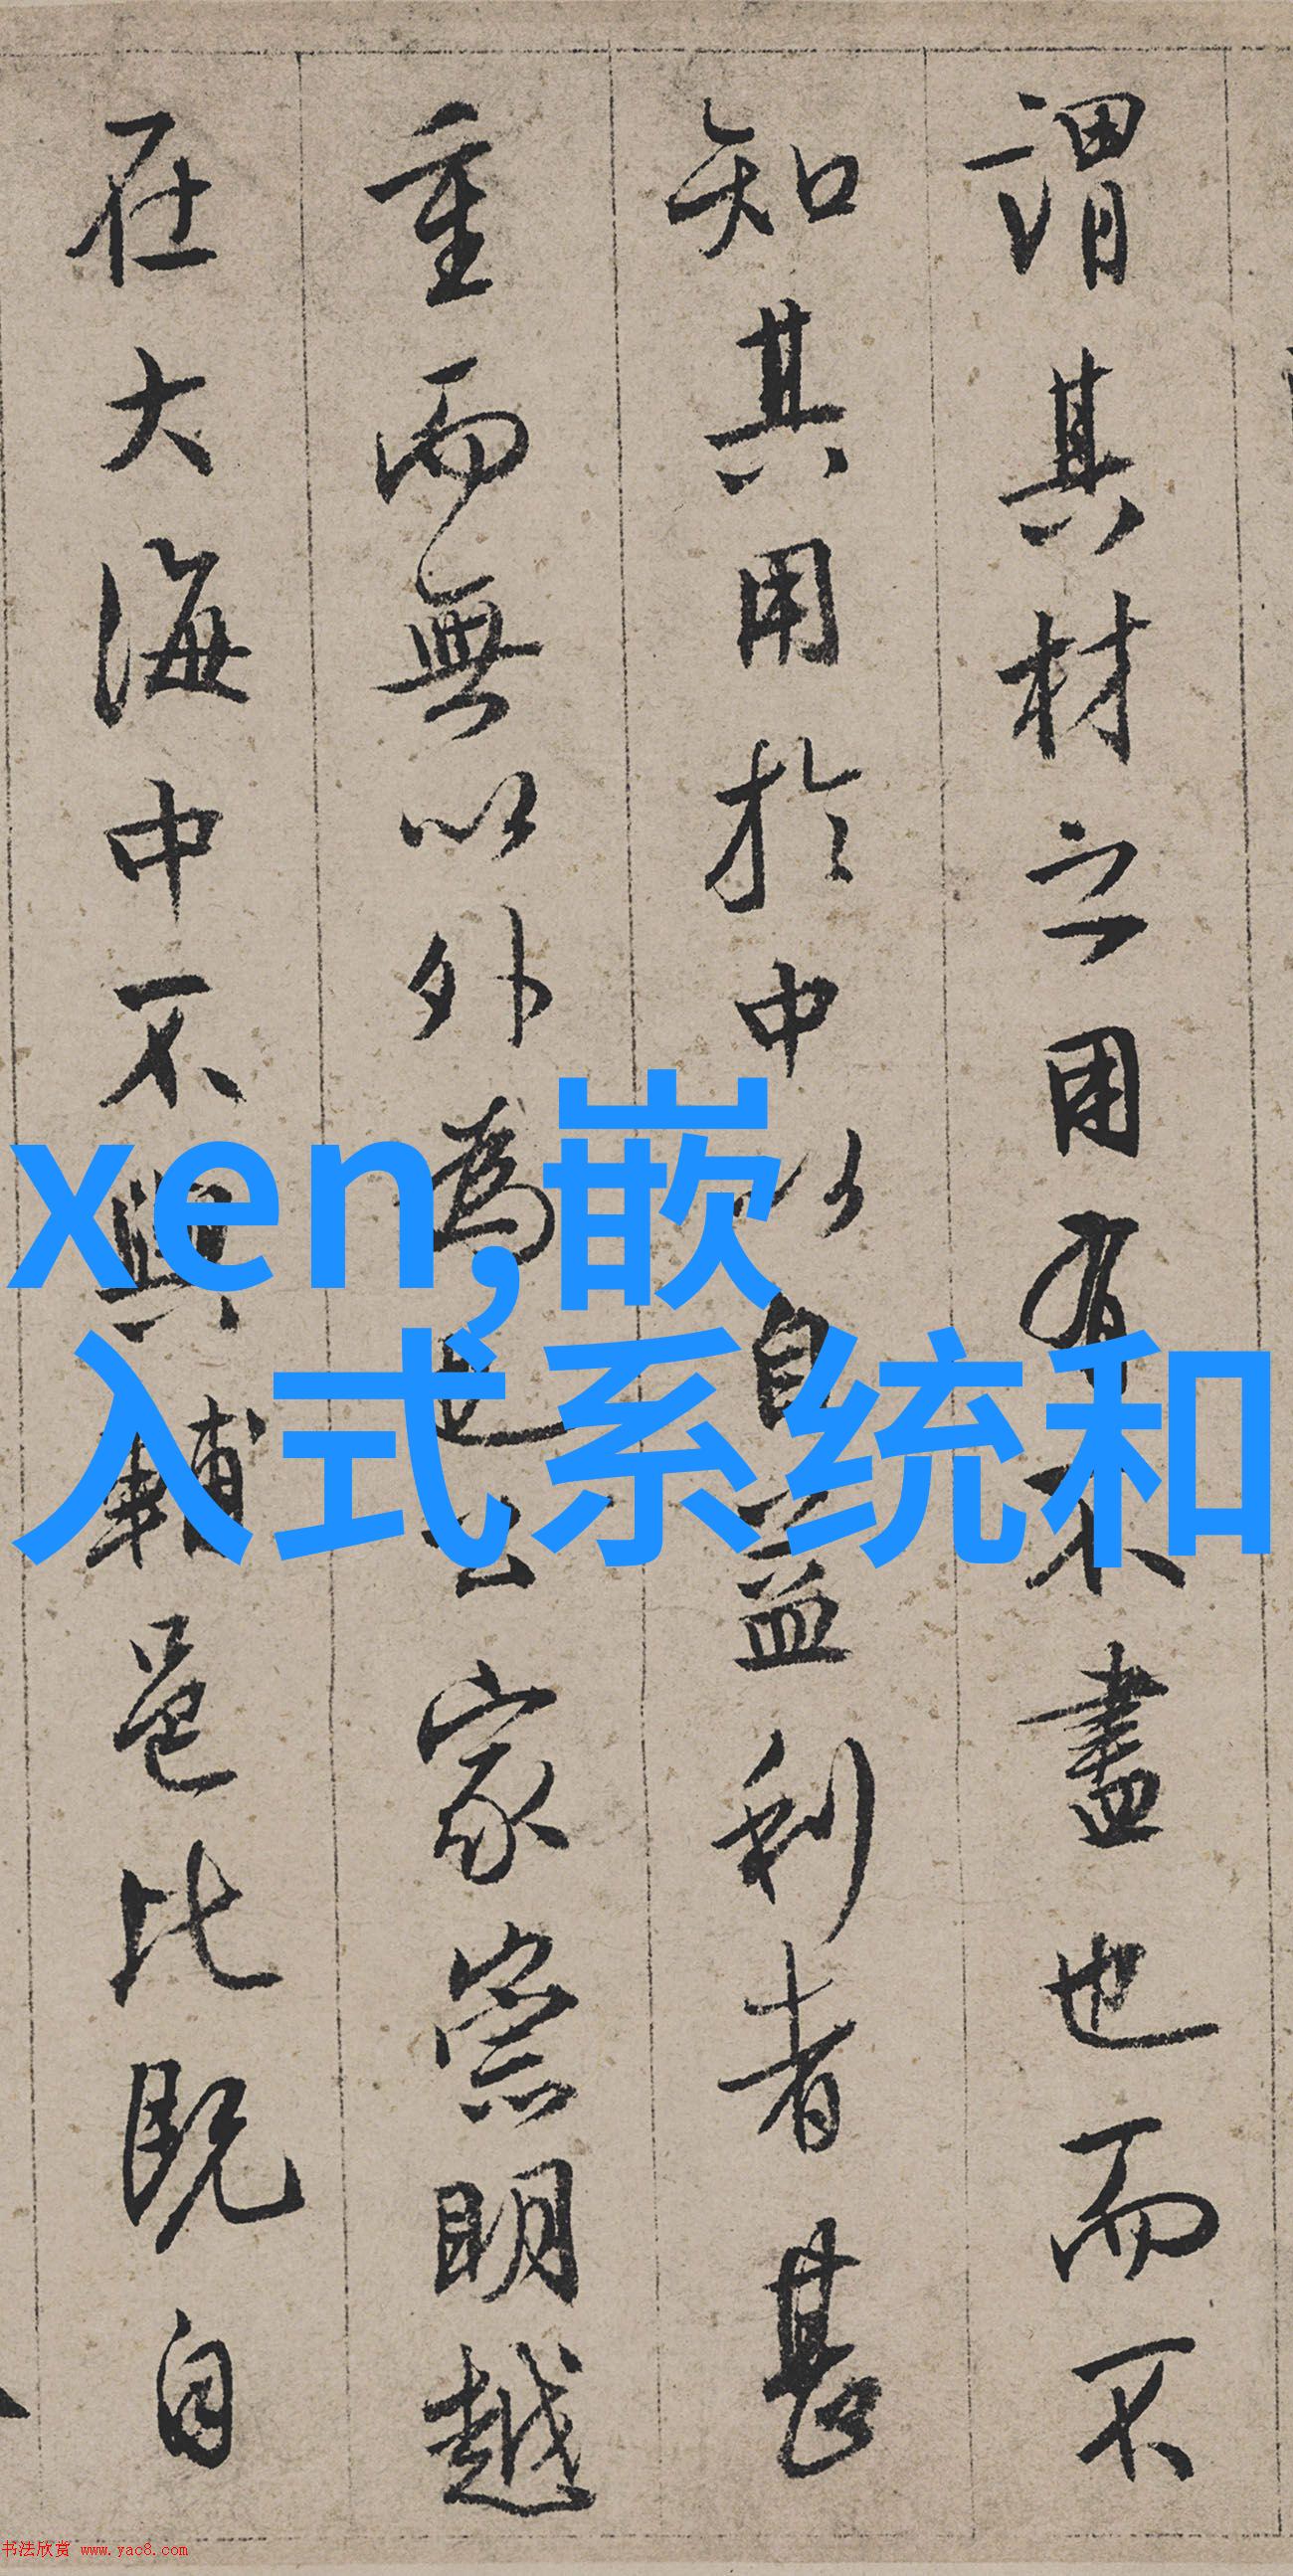 謂其材之用有不盡也而不
知其用於中以自益利者甚
重而無以外為也公家崇明越
在大海中不與輔邑比既自
xen,嵌
入式系统和
书法欣赏 www.yac8.com